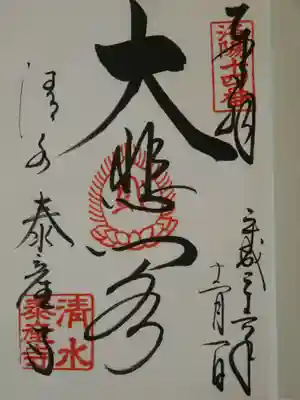 奉拝
洛陽十四番
平成二十一年
十一月一日
大悲閣
清水
泰産寺
清水
泰産寺